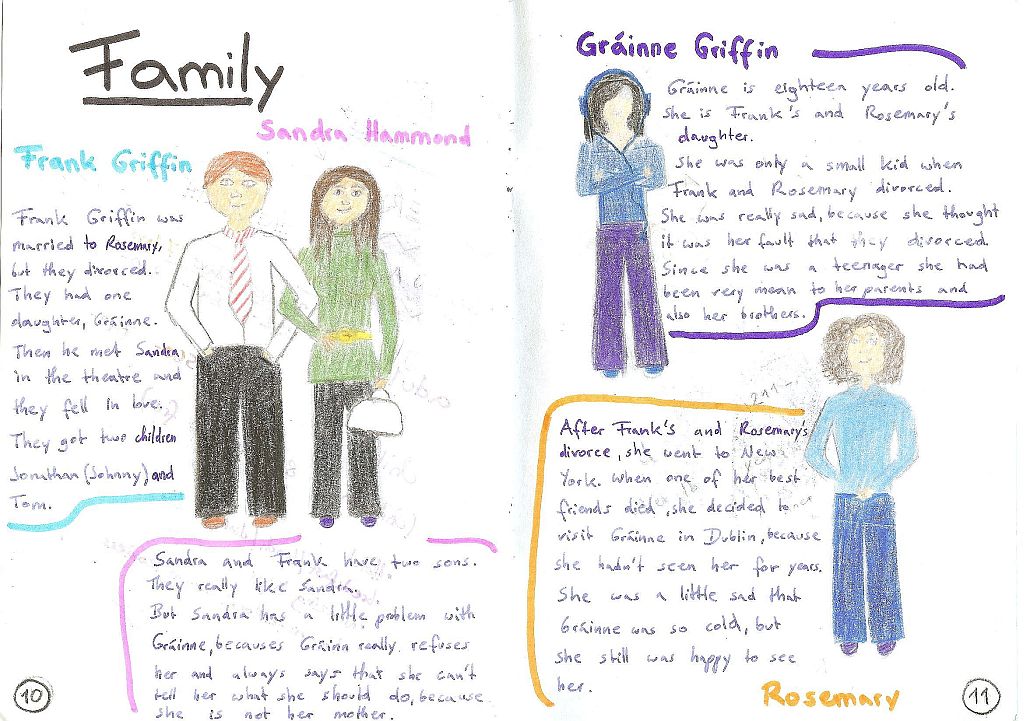 Family
Sandra Hammond
Frank Griffin
Frank Griffin was
married to Rosemary,
but they divorced.
They had one
daughter, Gráinne.
Then he met Sandra
in the theatre and
they fell in love.
They got two children
Jonathan (Johnny) and
Tom.
Sandra and Frank have two sons.
They really like Sandra.
But Sandra has a little problem with
Gráinne, becauses Gráinn really refuses
her and always says that she can't
tell her what she should do, because
she is not her mother.
10
Gráinne Griffin
Gráinne is eighteen years old.
She is Frank's and Rosemary's
daughter.
She was only a small kid when
Frank and Rosemary divorced.
She was really sad, because she thought
it was her fault that they divorced.
Since she was a teenager she had
been very mean to her parents and
also her brothers.
After Frank's and Rosemary's
divorce, she went to New
York. When one of her best
friends died, she decided to
visit Gráinne in Dublin, because
she hadn't seen her for years.
She was a little sad that
Gráinne was so cold, but
she still was happy to see
her.
Rosemary
11